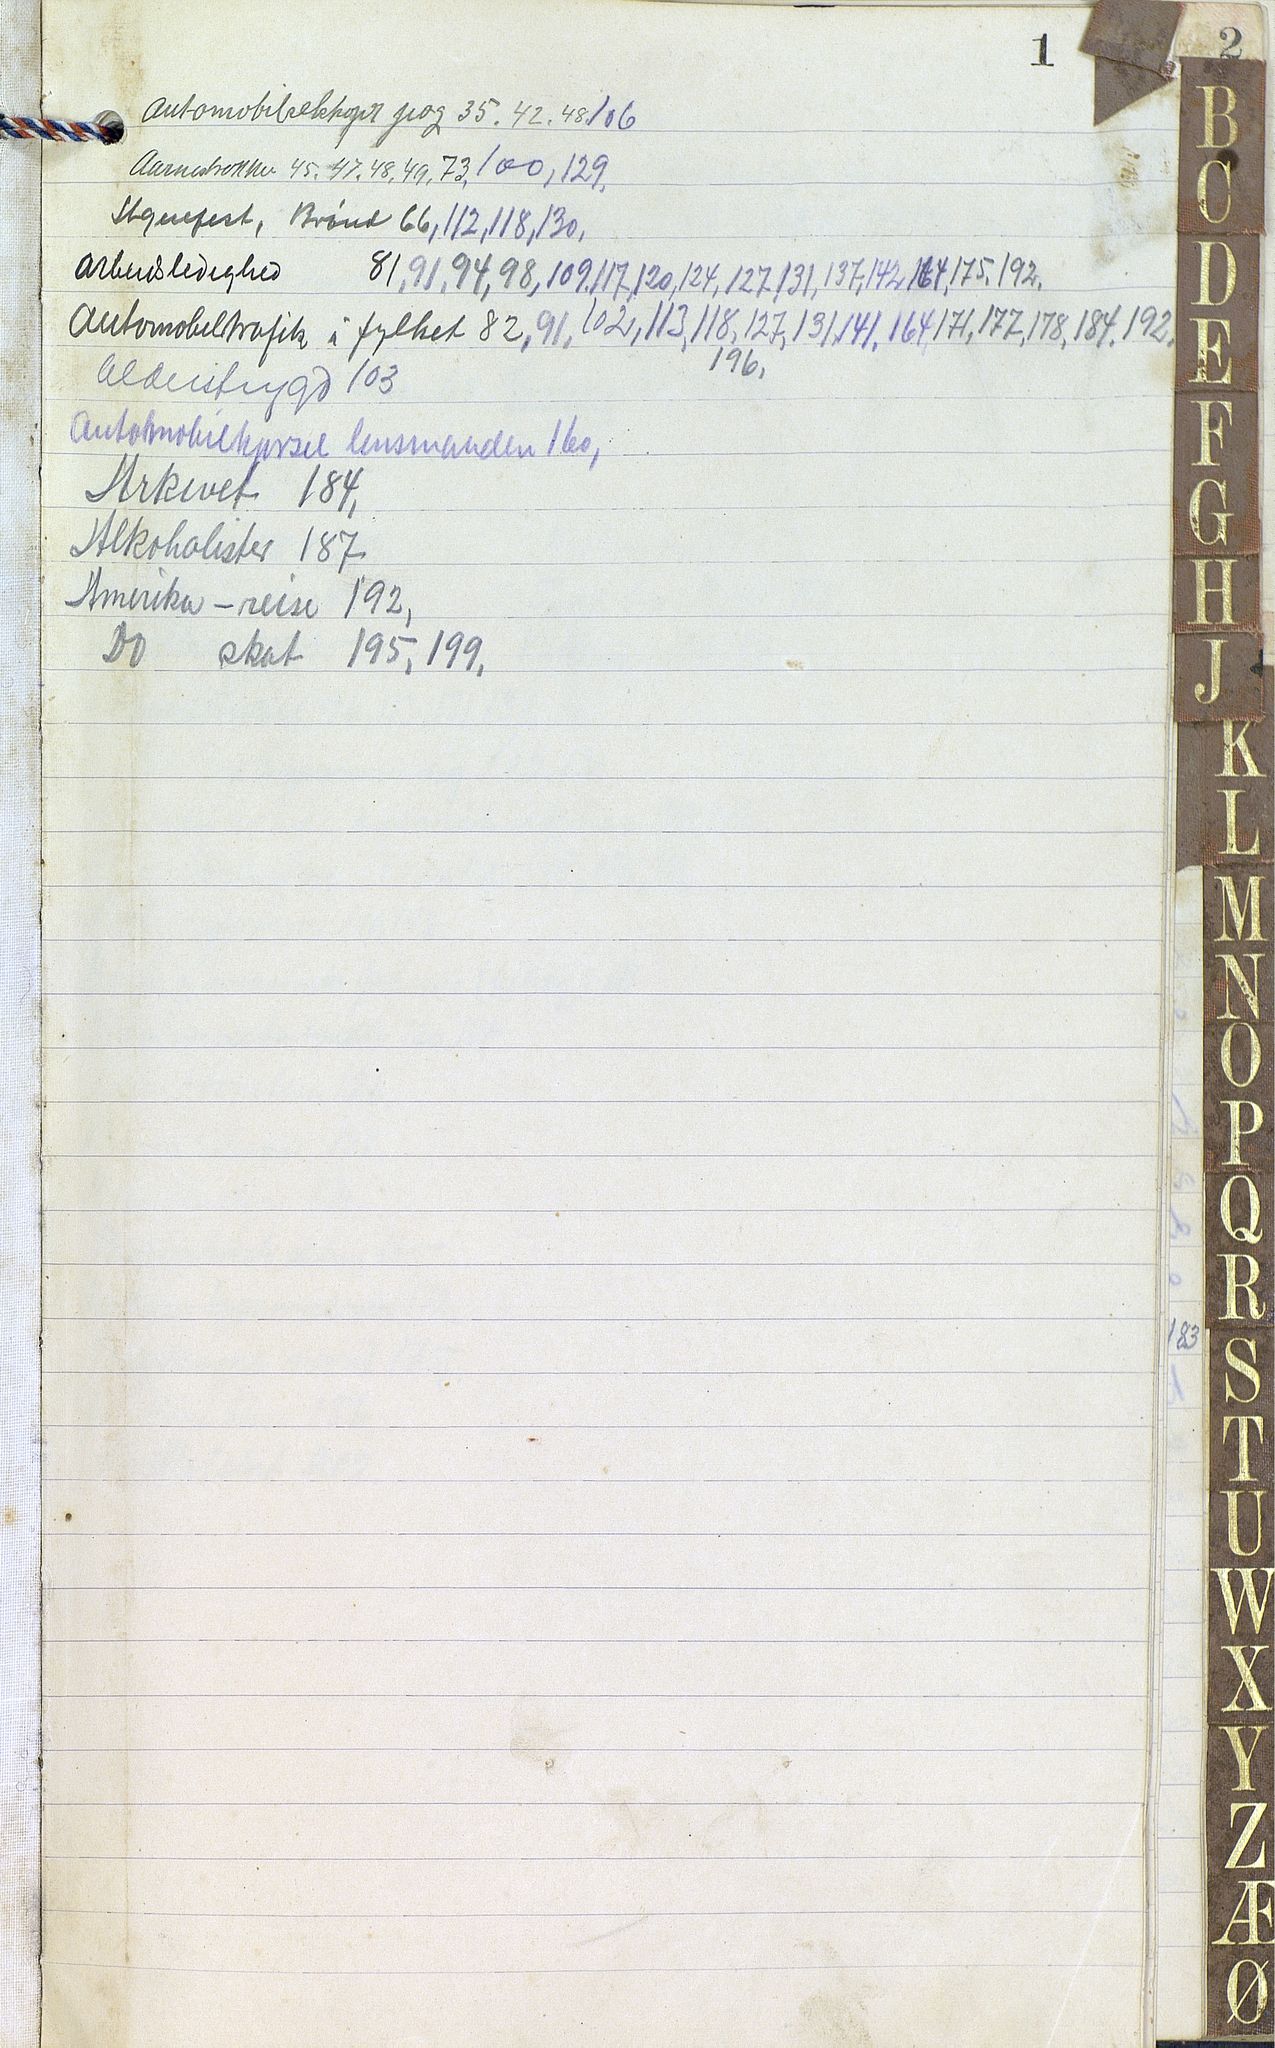 1
2
Automobilselskaper pag 35. 42. 48. 106
45. 47. 48. 49. 73, 100, 129,
Brønd 66, 112, 118, 130,
Arbeidsledighed 81, 91, 94, 98, 109, 117, 120, 124, 127, 131, 137, 142, 164, 175, 192,
Automobiltrafik i fylket 82, 91, 102, 113, 118, 127, 131, 141, 164, 171, 177, 178, 184, 192,
196,
Alderstrygd 103
Automobilkjørsel lensmanden 160,
Arkivet 184,
Alkoholister 187
Amerika - reise 192,
Do skat 195, 199,
183
B
C
D
E
F
G
H
J
K
L
M
N
O
P
Q
R
S
T
U
W
X
Y
Z
Æ
Ø